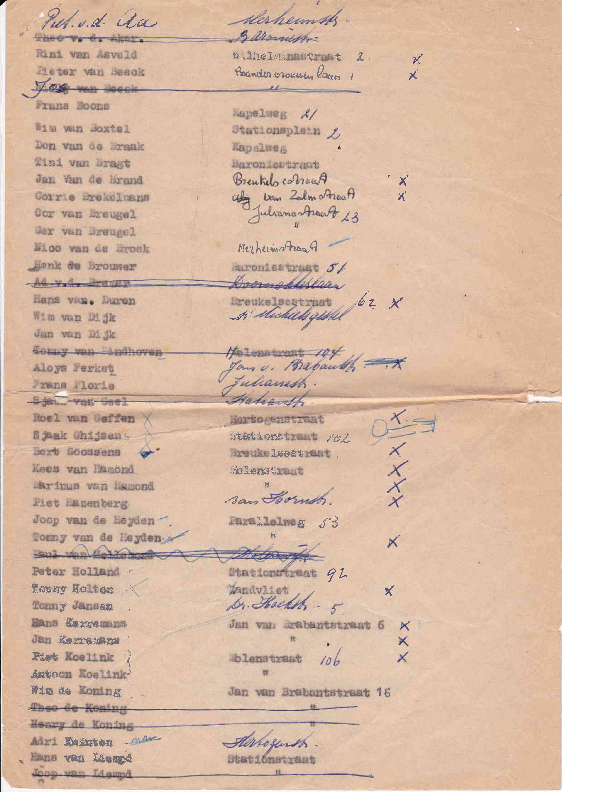 Piet. v.d. Aa Merheimstr.
Theo v. d. Aker. Baroniestr.
Rini van Asveld Wilhelminastraat 2. x
Pieter van Beeck 1 x
Jos van Beeck "
Frans Boons Kapelweg 21
Wim van Boxtel Stationsplein 2
Don van de Braak Kapelweg
Tini van Bragt Baroniestraat
Jan Van de Brand Breukelsestraat x
Corrie Brekelmans van Zalmstraat x
Cor van Breugel Julianastraat 23
Ger van Breugel "
Nico van de Broek Merheimstraat
Henk de Brouwer Baroniestraat 51
Ad v.d.
Hans van. Duren Breukelsestraat 62 x
Wim van Dijk St Michielsgestel
Jan van Dijk
Tonny van Eindhoven Molenstraat 104
Aloys Ferket Jan v. Brabantstr x
Frans Florie Julianastr.
Sjaak van Geel Stationstr.
Roel van Geffen x Hertogenstraat x
Sjaak Ghijsens Stationstraat 102
Bert Goossens Breukelsestraat x
Kees van Hamond Molenstraat x
Marinus van Hamond " x
Piet Hazenberg van Hornstr. x
Joop van de Heyden Parallelweg 53
Tonny van de Heyden " x
Paul van
Peter Holland Stationstraat 92
Tonny Holten Zandvliet x
Tonny Jansen Dr. 5
Hans Kerremans Jan van Brabantstraat 6 x
Jan Kerremans " x
Piet Koelink } Molenstraat 106 x
Antoon Koelink "
Wim de Koning Jan van Brabantstraat 16
Theo de Koning "
Henry de Koning "
Adri Hertogenstr.
Hans van Liempd Stationstraat
Joop van Liempd "